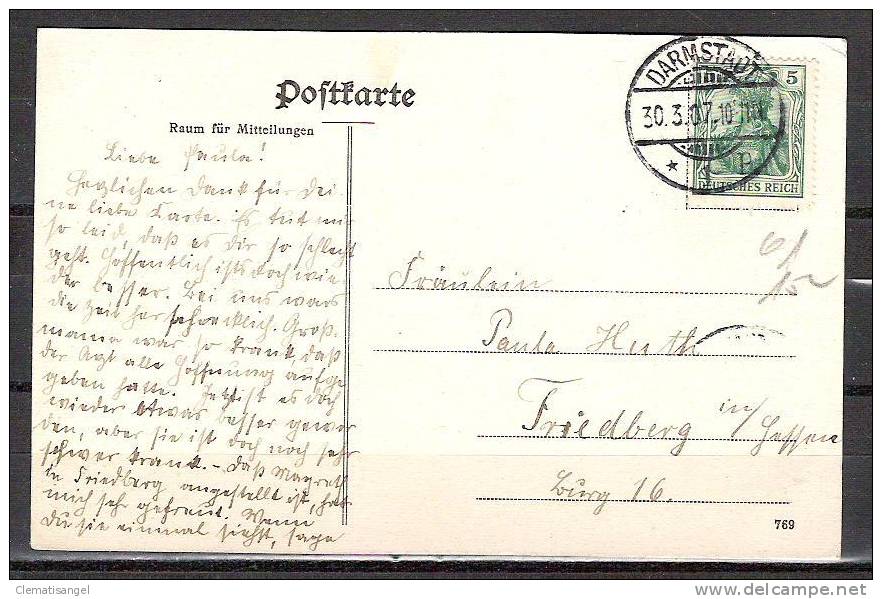 Postkarte
Raum für Mitteilungen
Liebe Paula!
Herzlichen Dank für Dei
ne liebe Karte. Es tut mir
so leid, daß es dir so schlecht
geht. Hoffentlich ists doch wie
der besser. Bei uns wars
die Zeit her schrecklich. Groß-
mama war so krank, daß
der Arzt alle Hoffnung aufge
geben hatte. Jetzt ist es doch
wieder etwas besser gewor
den, aber sie ist doch noch sehr
schwer krank. – Daß Magreth
in Friedberg angestellt ist, hat
mich sehr gefreut. Wenn
Du sie einmal siehst, sage
DARMSTADT
30.3.07. 10-11 V.
* P
5
DEUTSCHES REICH
Fräulein
Paula Huth
Friedberg in/ Hessen
Burg 16.
769
Clematisangel
www.delcampe.net